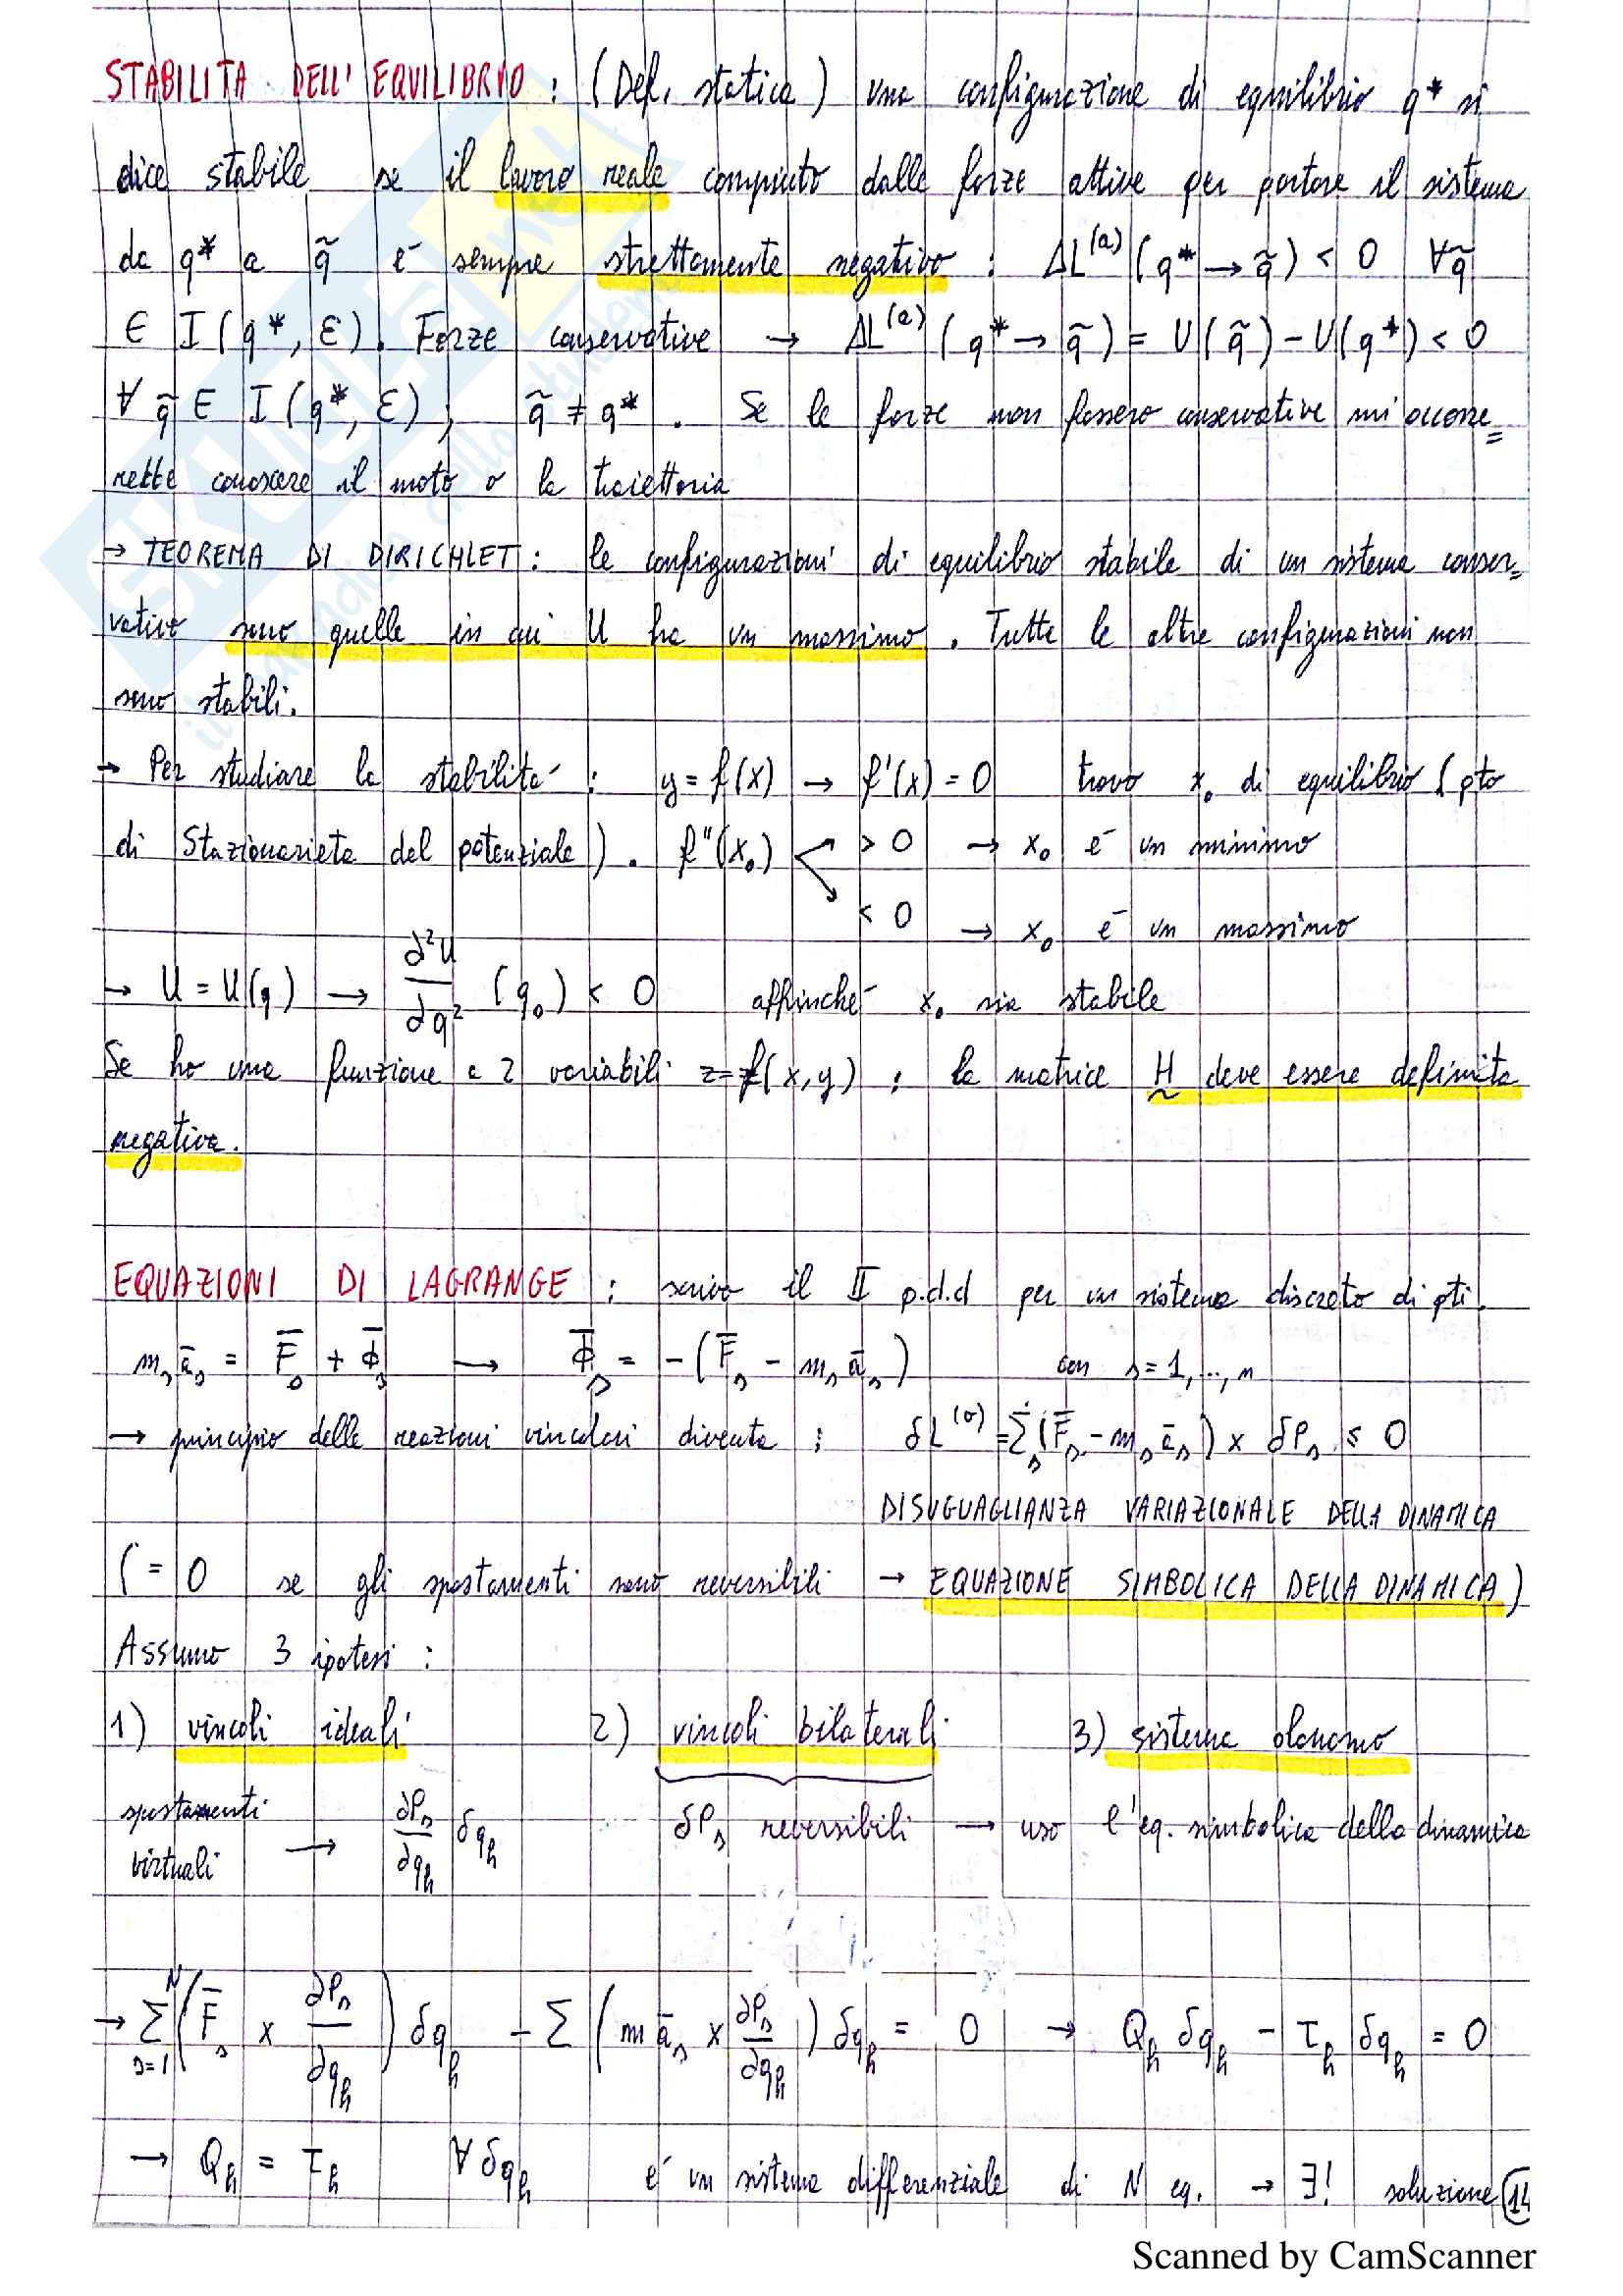 STABILITA' DELL'EQUILIBRIO : (Def. statica) una configurazione di equilibrio q* si
dice stabile se il lavoro reale compiuto dalle forze attive per portare il sistema
da q* a q̃ é sempre strettamente negativo : ΔL⁽ᵃ⁾ (q* → q̃) < 0 ∀q̃
∈ I(q*, ε). Forze conservative → ΔL⁽ᵃ⁾ (q* → q̃) = U(q̃) - U(q*) < 0
∀ q̃ ∈ I(q*, ε), q̃ ≠ q* . Se le forze non fossero conservative mi occor=
rebbe conoscere il moto o la traiettoria
→ TEOREMA DI DIRICHLET : le configurazioni di equilibrio stabile di un sistema conser=
vativo sono quelle in cui U ha un massimo . Tutte le altre configurazioni non
sono stabili.
→ Per studiare la stabilità : y = f(x) → f'(x) = 0 trovo x₀ di equilibrio (pto
di Stazionarieta del potenziale). f''(x₀) > 0 → x₀ é un minimo
< 0 → x₀ é un massimo
→ U = U(q) → ∂²U/∂q² (q₀) < 0 affinché x₀ sia stabile
Se ho una funzione a 2 variabili z = f(x,y) ; la matrice H deve essere definita
negativa.
EQUAZIONI DI LAGRANGE : scrivo il II p.d.d per un sistema discreto di pti.
mₛāₛ = F̄ₛ + Φ̄ₛ → Φ̄ₛ = -(F̄ₛ - mₛāₛ) con s = 1, ..., n
→ principio delle reazioni vincolari diventa : δL⁽ᵃ⁾ = Σₛ (F̄ₛ - mₛāₛ) x δPₛ ≤ 0
DISUGUAGLIANZA VARIAZIONALE DELLA DINAMICA
(= 0 se gli spostamenti sono reversibili → EQUAZIONE SIMBOLICA DELLA DINAMICA)
Assumo 3 ipotesi :
1) vincoli ideali 2) vincoli bilaterali 3) sistema olonomo
spostamenti virtuali → ∂Pₛ/∂qₕ δqₕ δPₛ reversibili → uso l'eq. simbolica della dinamica
→ Σₛ₌₁ᴺ (F̄ₛ x ∂Pₛ/∂qₕ) δqₕ - Σ (m āₛ x ∂Pₛ/∂qₕ) δqₕ = 0 → Qₕ δqₕ - τₕ δqₕ = 0
→ Qₕ = τₕ ∀ δqₕ é un sistema differenziale di N eq. → ∃! soluzione 14
Scanned by CamScanner